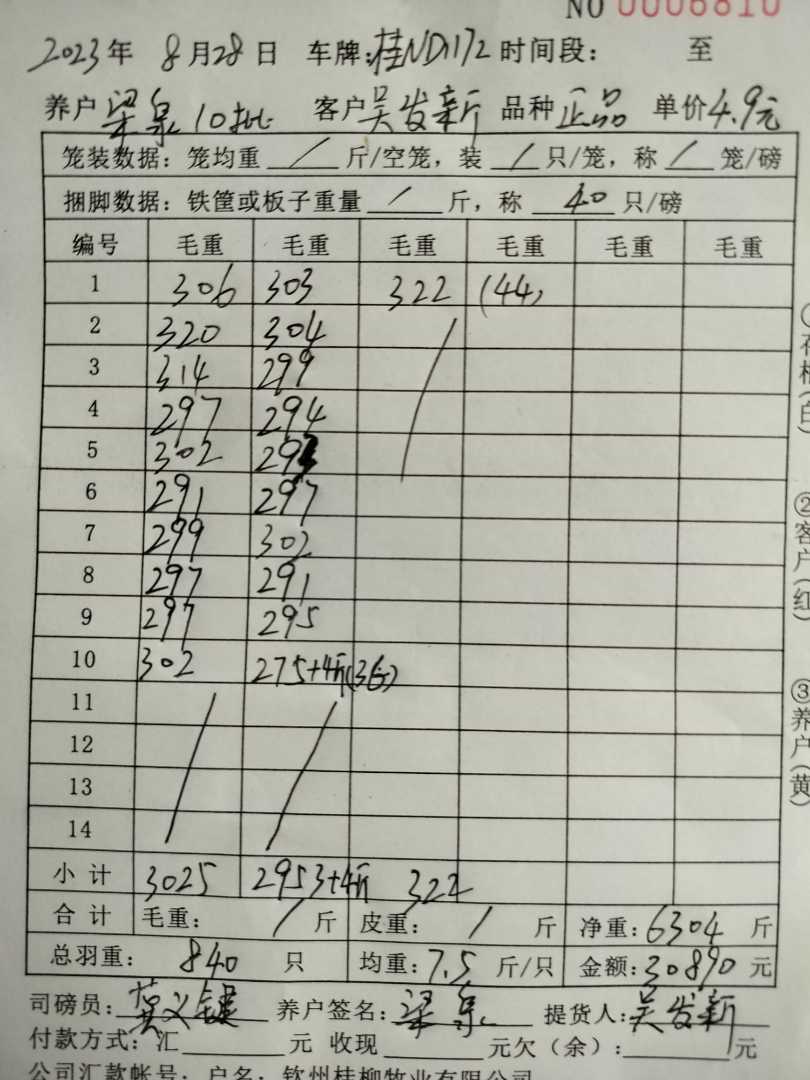 NO 0006810
2023年 8月28日 车牌:桂ND1172 时间段: 至
养户 梁泉 10批 客户 吴发新 品种 正品 单价 4.9元
笼装数据: 笼均重 / 斤/空笼, 装 / 只/笼, 称 / 笼/磅
捆脚数据: 铁筐或板子重量 / 斤, 称 40 只/磅
编号 毛重 毛重 毛重 毛重 毛重 毛重
1 306 303 322 (44)
2 320 304
3 314 299
4 297 294
5 302 293
6 291 297
7 299 302
8 297 291
9 297 295
10 302 275+4斤(36)
11
12
13
14
小计 3025 2953+4斤 322
合计 毛重: / 斤 皮重: / 斤 净重: 6304 斤
总羽重: 840 只 均重: 7.5 斤/只 金额: 30890 元
司磅员: 莫义键 养户签名: 梁泉 提货人: 吴发新
付款方式: 汇 元 收现 元欠(余): 元
公司汇款帐号: 户名: 钦州桂柳牧业有限公司
②客户(红)
③养户(黄)